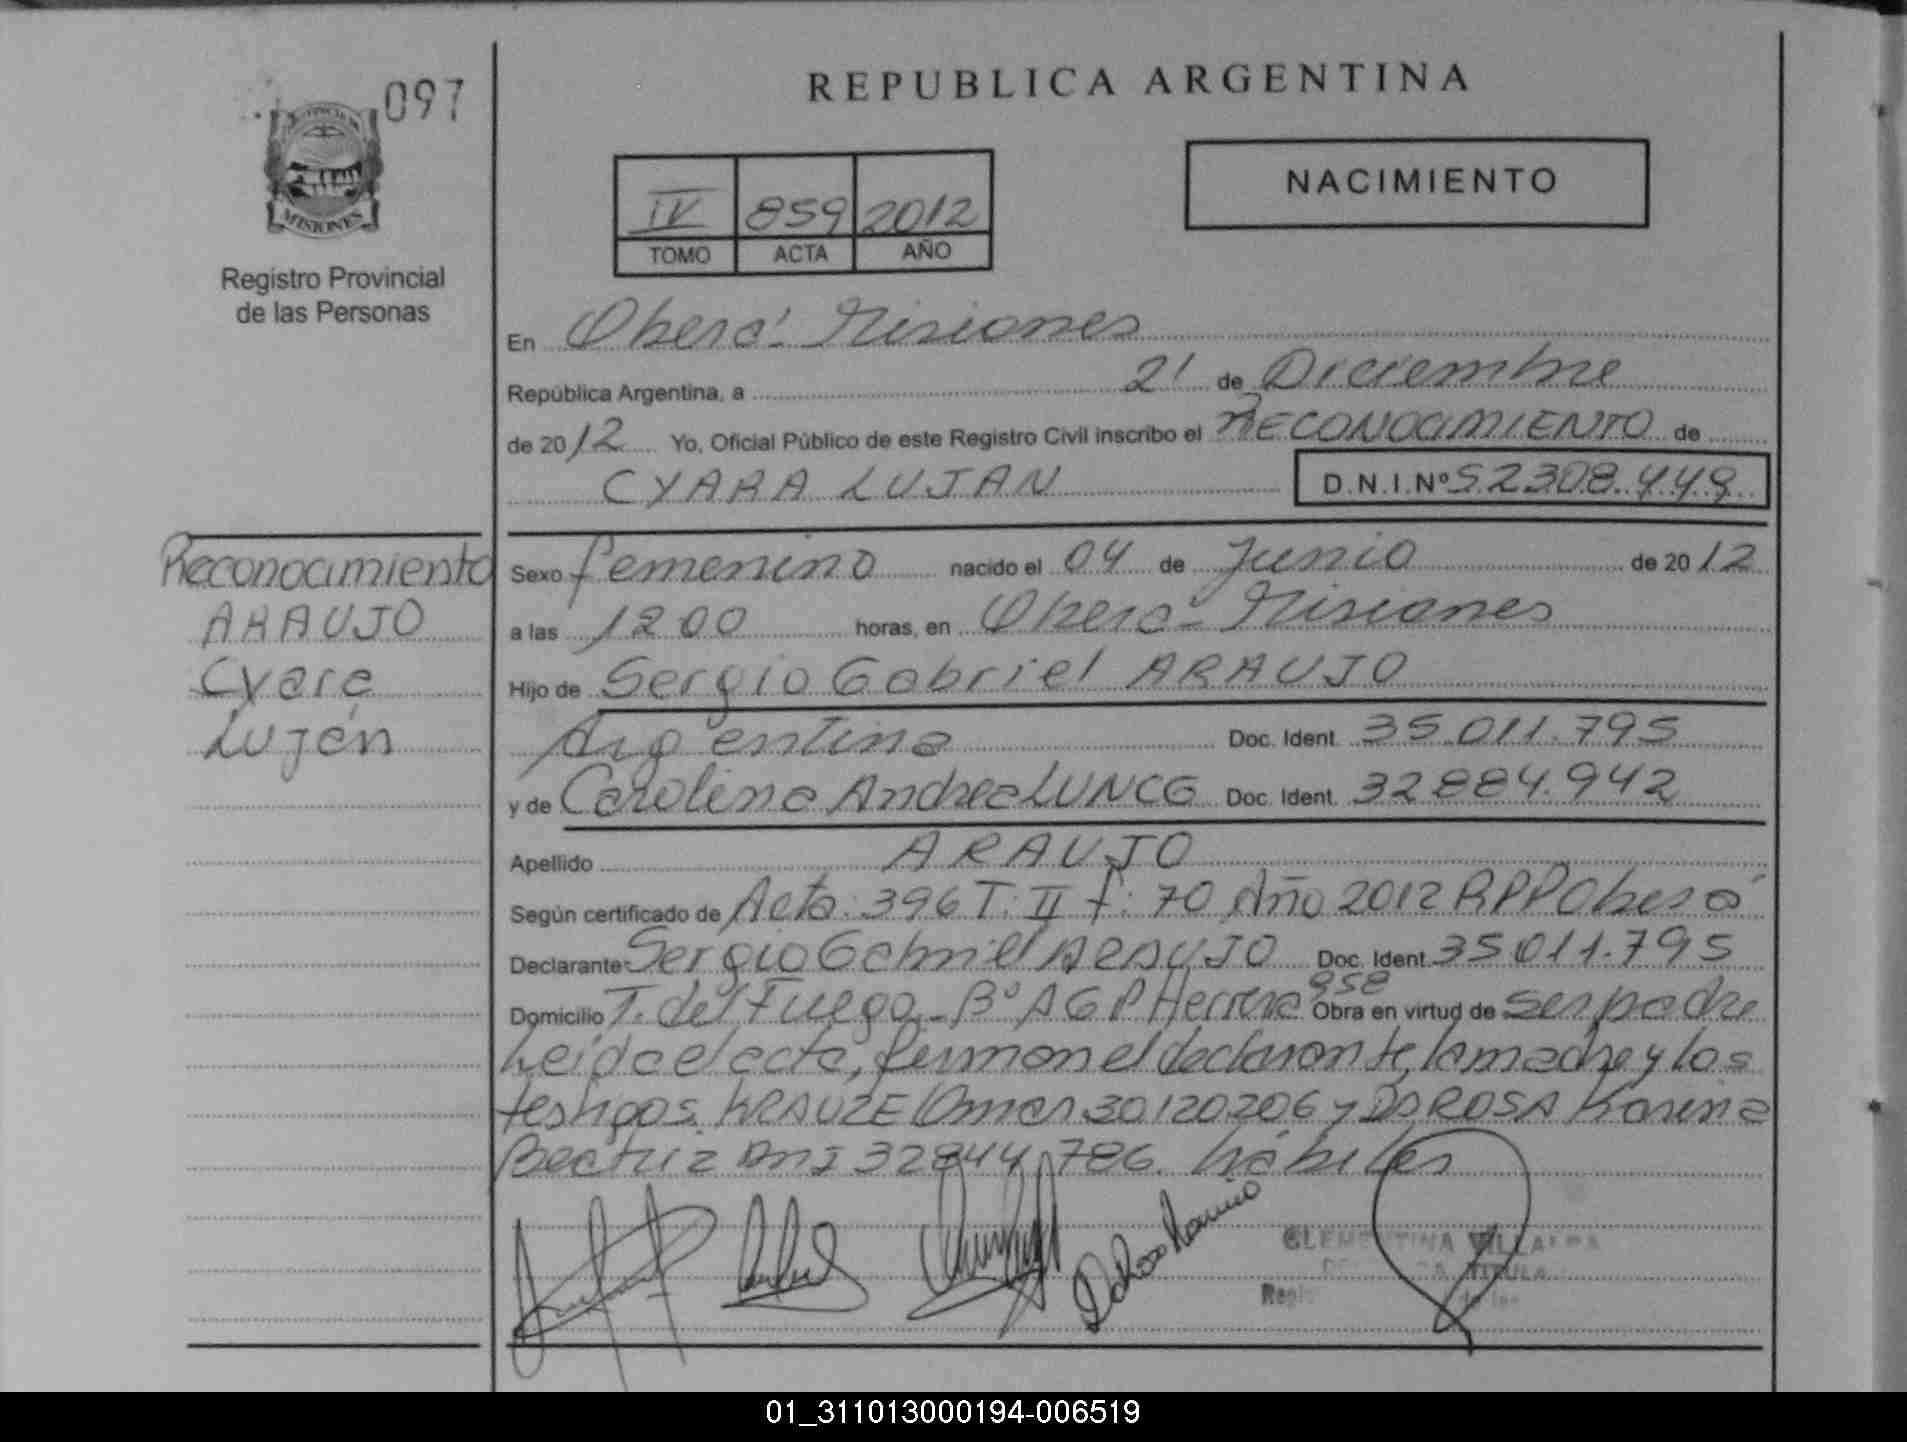 097
REPUBLICA ARGENTINA
NACIMIENTO
IV 859 2012
TOMO ACTA AÑO
MISIONES
Registro Provincial
de las Personas
En Oberá - Misiones
República Argentina, a 21 de Diciembre
de 2012 Yo, Oficial Público de este Registro Civil inscribo el RECONOCIMIENTO de
CYARA LUJAN D.N.I.Nº 52308.449
Reconocimiento
ARAUJO
Cyara
Luján
Sexo femenino nacido el 04 de Junio de 2012
a las 12 00 horas, en Oberá - Misiones
Hijo de Sergio Gabriel ARAUJO
Argentina Doc. Ident. 35.011.795
y de Carolina Andrea LUNCG Doc. Ident. 32884.942
Apellido ARAUJO
Según certificado de Acta: 396 T: II f: 70 Año 2012 RPP Oberá
Declarante Sergio Gabriel ARAUJO Doc. Ident. 35.011.795
Domicilio T. del Fuego - Bº A G P Herrera 958 Obra en virtud de ser padre
Leída el acta, firman el declarante, la madre y los
testigos KRAUZE Omar 30120206 y Da ROSA Karina
Beatriz DNI 32844.786. hábiles
CLEMENTINA VILLALBA
01_311013000194-006519